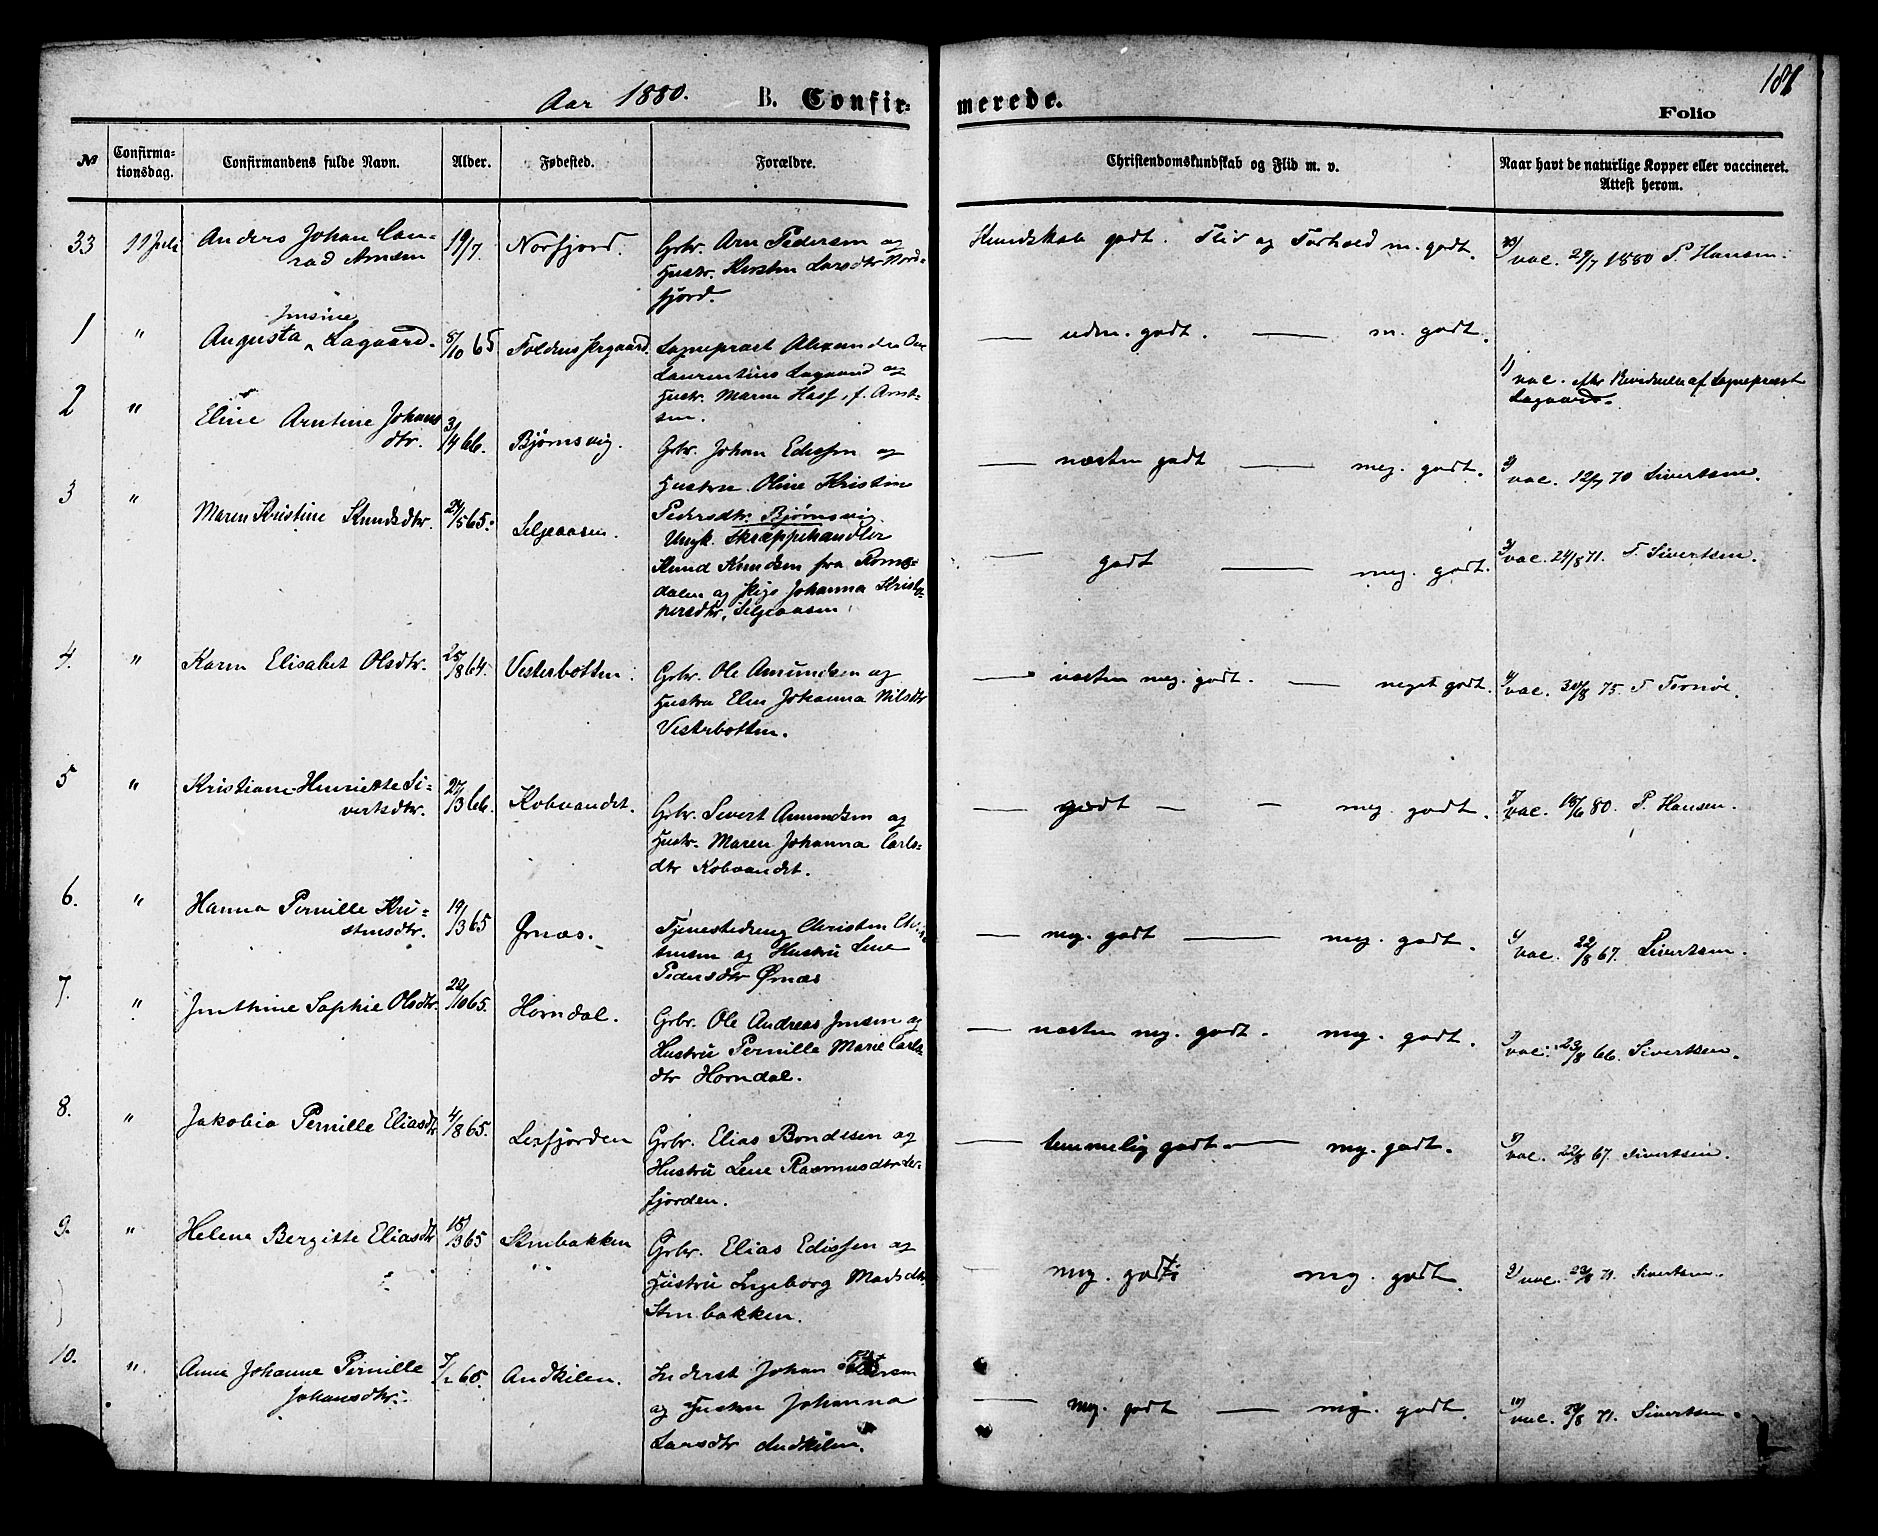 181
Aar 1880. B. Confirmerede.
Folio
№
Confirmationsdag.
Confirmandens fulde Navn.
Alder.
Fødested.
Forældre.
Christendomskundskab og Flid m. v.
Naar havt de naturlige Kopper eller vaccineret.
Attest herom.
33 11 Juli Anders Johan Con-
rad Arnsen
19/7. Norfjord.
Grbr. Arn Pedersen og
Hustr. Kirsten Larsdtr Nord-
fjord.
Kundskab godt. Flid og Forhold m. godt.
vac. 27/7 1880 P. Hansen.
1 " Jensine
Augusta Lagaard.
8/10 65 Foldens Prgaard.
Sognepræst Alexander
Laurentius Lagaard og
Hustr. Maren Hass, f. Arnt-
sen.
— uden. godt. — m. godt.
1) vac. efter Bevidnelse af Sognepræst
Lagaard.
2 " Eline Arntine Johans
dtr.
3/4 66. Bjørnsvig.
Grbr. Johan Edissen og
Hustru Oline Kristine
Pedersdtr. Bjørnsvig.
— næsten godt — meg. godt.
2) vac. 12/7 70 Sivertsen.
3 " Maren Kristine Knudsdtr.
24/5 65. Seljeaasen.
Ungk. Skræppehandler
Knud Knudsen fra Roms-
dalen og Pige Johanna Kristo-
persdtr, Seljeaasen
— godt — meg. godt.
3) vac. 24/8 71. T. Sivertsen.
4. " Karen Elisabet Olsdtr.
25/8 64. Vesterbotten.
Grbr. Ole Amundsen og
Hustru Elen Johanna Nilsdtr
Vesterbotten.
— næsten meg. godt. — meget godt.
4) vac. 30/8 75. T Ternöe.
5 " Kristiane Henriette Si-
vertsdtr.
27/3 66. Kobvandet.
Grbr. Sivert Amundsen og
Hustr. Maren Johanna Carls-
dtr Kobvandet.
— godt — — meg. godt.
5) vac. 18/6 80. P. Hansen.
6. " Hanna Pernille Kri-
stensdtr.
19/3 65 Ørnæs.
Tjenestedreng Christen Chri-
stensen og Hustru Lene
Pedersdtr Ørnæs
— meg. godt — meg. godt.
6) vac. 22/8 67. Sivertsen.
7. " Jenthine Sophie Olsdtr.
22/10 65. Horndal.
Grbr. Ole Andreas Jensen og
Hustru Pernille Marie Carls-
dtr Horndal.
— næsten meg. godt. meg. godt.
7) vac. 23/8 66. Sivertsen.
8. " Jakobia Pernille Eliasdtr
4/8 65. Lerfjorden
Grbr. Elias Bondesen og
Hustru Lene Rasmusdtr Ler-
fjorden.
— temmelig godt. — meg. godt.
8) vac. 22/8 67. Sivertsen.
9. " Helena Bergitte Eliasdtr
15/3 65 Stenbakken
Grbr. Elias Edissen og
Hustru Ingeborg Madsdtr
Stenbakken.
meg. godt meg. godt.
9) vac. 23/8 71. Sivertsen.
10. " Anne Johanne Pernille
Johansdtr.
65. Andkilen.
Inderst Johan
og Hustru Johanna
Larsdtr Andkilen.
— meg. godt — meg. godt.
10) vac. 23/8 71. Sivertsen.